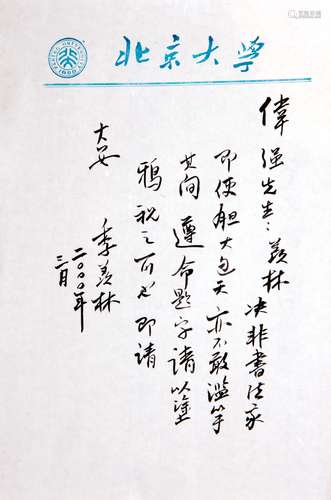 北京大学
PEKING UNIVERSITY
1898
偉强先生：羡林决非書法家
即使胆大包天亦不敢滥竽
其间 遵命题字请以塗
鸦视之可也 即请
大安
季羡林
二〇〇〇年
三月